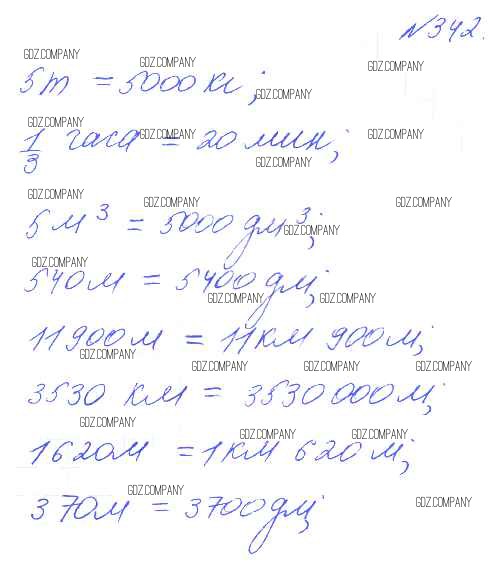 №342.
GDZ.COMPANY GDZ.COMPANY GDZ.COMPANY
5т = 5000 кг;
GDZ.COMPANY
GDZ.COMPANY GDZ.COMPANY GDZ.COMPANY
1/3 часа = 20 мин;
GDZ.COMPANY
GDZ.COMPANY GDZ.COMPANY GDZ.COMPANY
5м³ = 5000 дм³;
GDZ.COMPANY
GDZ.COMPANY
540м = 5400 дм;
GDZ.COMPANY GDZ.COMPANY
11900м = 11км 900м;
GDZ.COMPANY
GDZ.COMPANY GDZ.COMPANY GDZ.COMPANY
3530 км = 3530000м;
GDZ.COMPANY
GDZ.COMPANY GDZ.COMPANY
1620м = 1км 620м;
GDZ.COMPANY GDZ.COMPANY
370м = 3700дм;